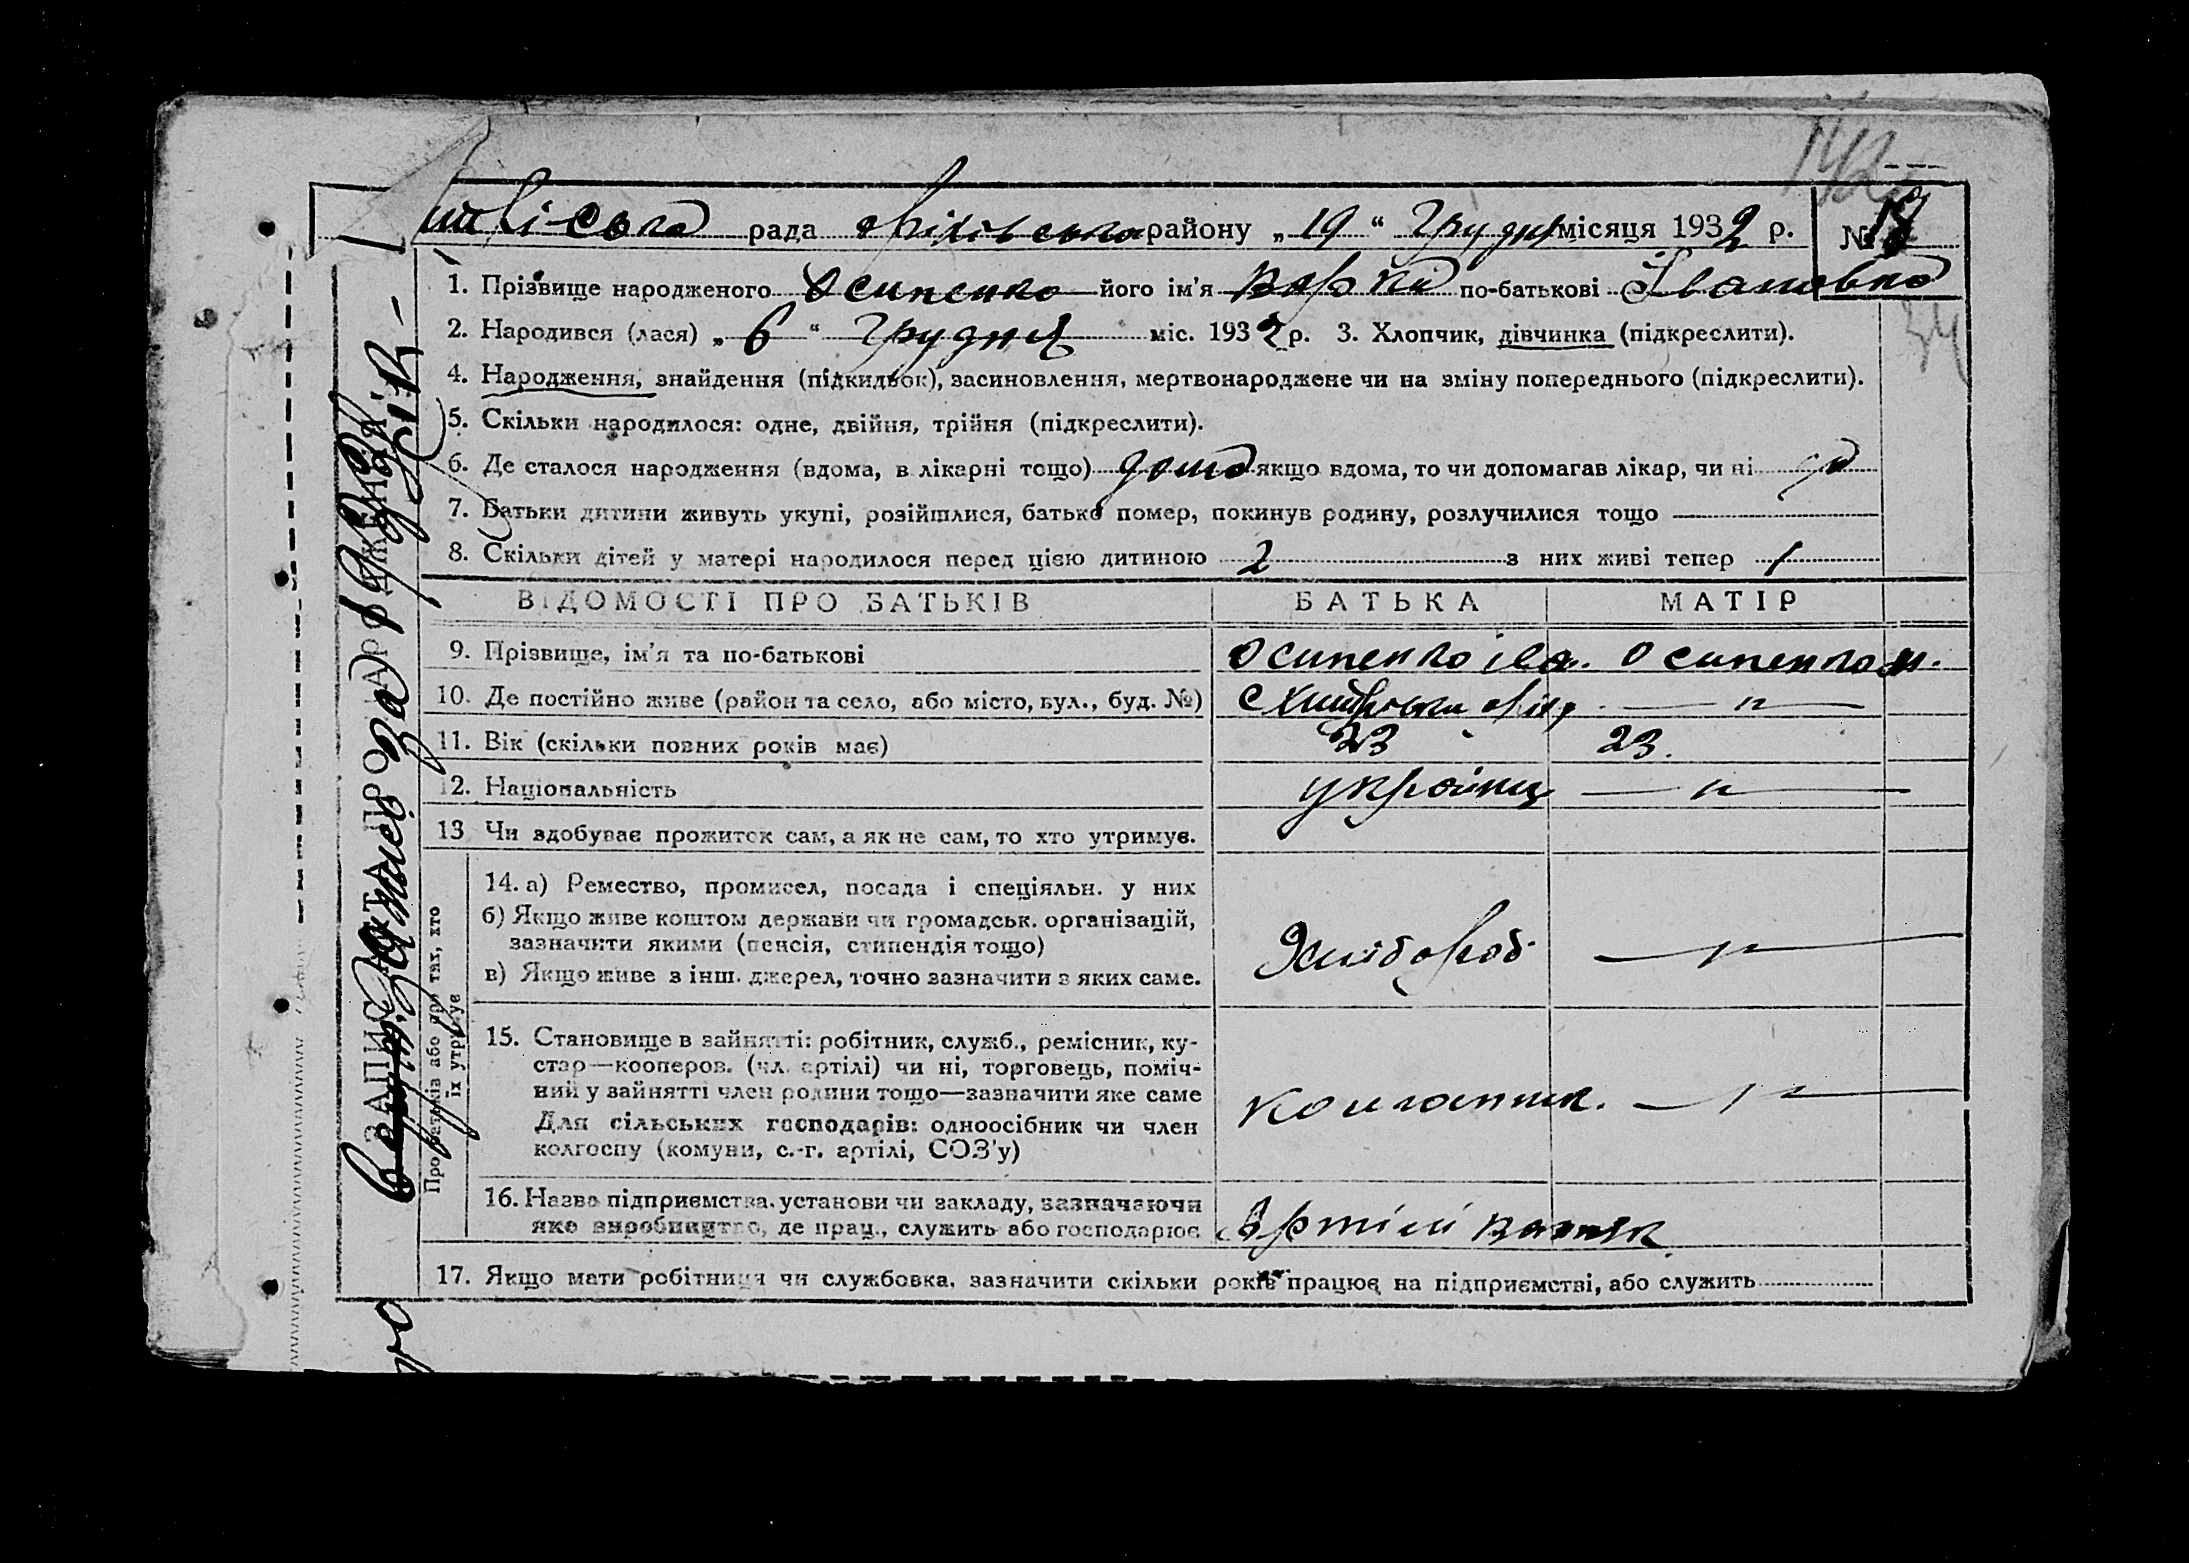 рада району „19“ Грудня місяця 1932 р. № 18
1. Прізвище народженого Осипенко його ім'я Варка по-батькові Івановна
2. Народився (лася) „6“ Грудня міс. 1932 р. 3. Хлопчик, дівчинка (підкреслити).
4. Народження, знайдення (підкидьок), засиновлення, мертвонароджене чи на зміну попереднього (підкреслити).
5. Скільки народилося: одне, двійня, трійня (підкреслити).
6. Де сталося народження (вдома, в лікарні тощо) дома якщо вдома, то чи допомагав лікар, чи ні
7. Батьки дитини живуть укупі, розійшлися, батько помер, покинув родину, розлучилися тощо
8. Скільки дітей у матері народилося перед цією дитиною 2 з них живі тепер 1
ВІДОМОСТІ ПРО БАТЬКІВ БАТЬКА МАТІР
9. Прізвище, ім'я та по-батькові Осипенко Іва. Осипенко
10. Де постійно живе (район та село, або місто, вул., буд. №) — " —
11. Вік (скільки повних років має) 23 23.
12. Національність українц — " —
13 Чи здобуває прожиток сам, а як не сам, то хто утримує.
Про батьків або про тих, хто їх утримує
14. а) Ремество, промисел, посада і спеціяльн. у них
б) Якщо живе коштом держави чи громадськ. організацій,
зазначити якими (пенсія, стипендія тощо)
в) Якщо живе з інш. джерел, точно зазначити з яких саме.
Хлібороб — " —
15. Становище в зайнятті: робітник, служб., ремісник, ку-
стар—кооперов. (чл. артілі) чи ні, торговець, поміч-
ний у зайнятті член родини тощо—зазначити яке саме
Для сільських господарів: одноосібник чи член
колгоспу (комуни, с.-г. артілі, СОЗ'у)
— " —
16. Назва підприємства, установи чи закладу, зазначаючи
яке виробництво, де прац., служить або господарює Артілі
17. Якщо мати робітниця чи службовка, зазначити скільки років працює на підприємстві, або служить
ЗАПИС АКТА ПРО НАРОДЖЕННЯ